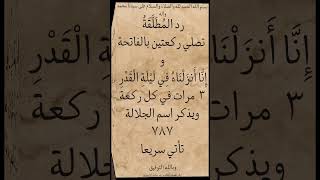 بسم الله الحميد لله والصلاة والسلام على سيدنا محمد
رد المُطَلَّقَةُ
تصلي ركعتين بالفاتحة
و
إِنَّا أَنزَلْنَاهُ فِي لَيْلَةِ الْقَدْرِ
٣ مرات في كل ركعة
ويذكر اسم الجلالة
٧٨٧
تأتي سريعا
وبالله التوفيق